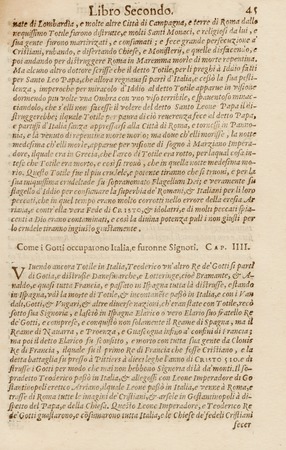 Libro Secondo. 45
nate di Lombardia, e molte altre Città di Campagna, e terre di Roma dallo
nequissimo Totile furono distrutte, e molti Santi Monaci, e religiosi da lui, e
sua gente furono martirizati, e consumati; e fece grande persecuzione a'
Cristiani, rubando, e disertando Chiese, e Monisteri, e quelle disfacendo, e
poi andando per distruggere Roma in Maremma morìo di morte repentina.
Ma alcuno altro dottore scrisse che il detto Totile, per li preghi à Iddio fatti
per Santo Leo Papa, che allora regnava si partì d'Italia, e cessò la sua pestilenza,
imperoche per miracolo d'Iddio al detto Totile apparve in visione
dormendo piu volte una Ombra con viso terribile, e spaventoso minacciandolo,
che s'elli non facesse il volere del detto Santo Leone Papa il distruggerebbe;
il quale Totile per paura di ciò reverenza fece al detto Papa,
e partissi d'Italia sanza appressarsi alla Città di Roma, e tornossi in Pannonia,
e là venuto di repentina morte morìo; ma done ch'elli morisse, la notte
medesima ch'elli morìe, apparve per visione a Marziano Imperadore,
il quale era in Grecia, che l'arco di Totile era rotto, per la qual cosa intese
che Totile era morto, e così si trovò, che in quella notte medesima morìo.
Questo Totile fue il piu crudele, e potente tiranno che si truovi, e per la
sua nequissima crudelitade fu sopranomato Flagellum Dei, e veramente fu
flagello di Iddio per consumare la superbia de' Romani, & Italiani per li loro
peccati, che in quel tempo erano molto corrotti nello errore della eresia Arriana,
e contro alla vera Fede di CRISTO, & idolatri, e di molti peccati spiacenti
a Dio erano contaminati, e così la divina potenza pulì i non giusti per
lo crudele tiranno ingiusto giustamente.
Come i Gotti occuparono Italia, e furonne Signori. CAP. IIII.
Vivendo ancora Totile in Italia, Teoderico un'altro Re de' Gotti si partì
di Gotia, e distrusse
quasi tutta Francia, e passato in Ispagna tutta là distrusse, estando
in Ispagna, udì la morte di Totile, & incontanente passò in Italia, e con i Vandali,
Gotti, & altre diverse nazioni, ch'erano state con Totile, recò
sotto sua Signoria, e lasciò in Ispagna Elarico o vero Elario suo fratello Re
de' Gotti, e compreso, e conquistò non solamente il Reame di Spagna, ma il
Reame di Navarra, e Proenza, e Guascogna insino a' confini di Francia;
ma poi il detto Elarico fu sconfitto, e morto con tutta sua gente da Clouis
Re di Francia, il quale fu il primo Re di Francia che fosse Cristiano, e la
detta battaglia fu presso à Pittieri à dieci leghe l'anno di CRISTO 510. e distrusse
i Gotti per modo che mai non hebbono Signoria di là da' monti. Il sopradetto
Teoderico passò in Italia, & allegossi con Leone Imperadore di Costantinopoli
eretico Arriano, il quale Leone passò in Italia, e venne à Roma, e
trasse di Roma tutte le imagini de' Cristiani, & arsele in Gostantinopoli à dispetto
del Papa, e della Chiesa. Questo Leone Imperadore, e Teoderico Re
de' Gotti guastarono, e consumarono tutta Italia, e le Chiese de' fedeli Cristiani
fecer